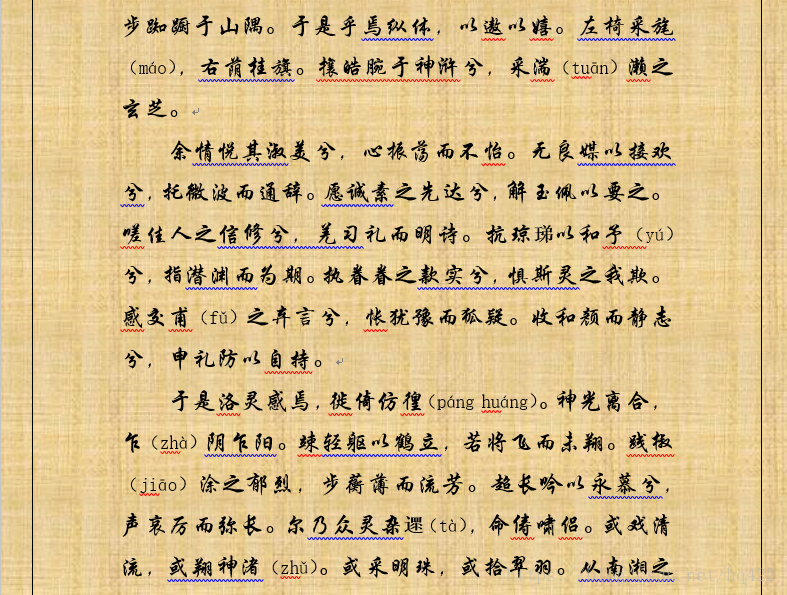 步踟蹰于山隅。于是乎焉纵体，以遨以嬉。左椅采旄
（máo），右荫桂旗。攘皓腕于神浒兮，采湍（tuān）濑之
玄芝。
余情悦其淑美兮，心振荡而不怡。无良媒以接欢
兮，托微波而通辞。愿诚素之先达兮，解玉佩以要之。
嗟佳人之信修兮，羌习礼而明诗。抗琼珶以和予（yú）
兮，指潜渊而为期。执眷眷之款实兮，惧斯灵之我欺。
感交甫（fǔ）之弃言兮，怅犹豫而狐疑。收和颜而静志
兮，申礼防以自持。
于是洛灵感焉，徙倚仿徨（páng huáng）。神光离合，
乍（zhà）阴乍阳。竦轻躯以鹤立，若将飞而未翔。践椒
（jiāo）涂之郁烈，步蘅薄而流芳。超长吟以永慕兮，
声哀厉而弥长。尔乃众灵杂遝（tà），命俦啸侣。或戏清
流，或翔神渚（zhǔ）。或采明珠，或拾翠羽。从南湘之